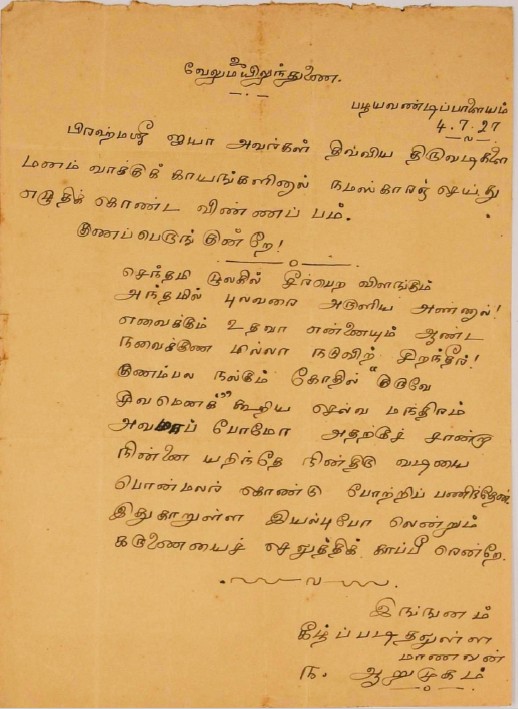 உ
வேலுமயிலுந்துணை.
பழயவண்டிப்பாளையம்
4.7.27
பிரஹ்மஸ்ரீ ஐயா அவர்கள் திவ்விய திருவடிகளை
மனம் வாக்குக் காயங்களினால் நமஸ்காரஞ் செய்து
எழுதிக் கொண்ட விண்ணப் பம்.
குணப்பெருங் குன்றே!
செந்தமி ழுலகில் சீர்பெற விளங்கும்
அந்தமில் புலவரை அருளிய அண்ணல்!
எவைக்கும் உதவா என்னையும் ஆண்ட
நவைக்குண மில்லா நடுவிற் சிறந்தீர்!
குணம்பல நல்கும் கோதில் "குருவே
சிவமெனக்" கூறிய செல்வ மந்திரம்
அவமாய் போமோ அதற்குச் சான்று
நின்னை யறிந்தே நின்திரு வடியை
பொன்மலர் கொண்டு போற்றிப் பணிந்தேன்
இதுகாறுள்ள இயல்புபோ லென்றும்
கருணையைச் செலுத்திக் காப்பீ ரென்றே.
இங்ஙனம்
கீழ்ப்படிதலுள்ள
மாணவன்
ந. ஆறுமுகம்